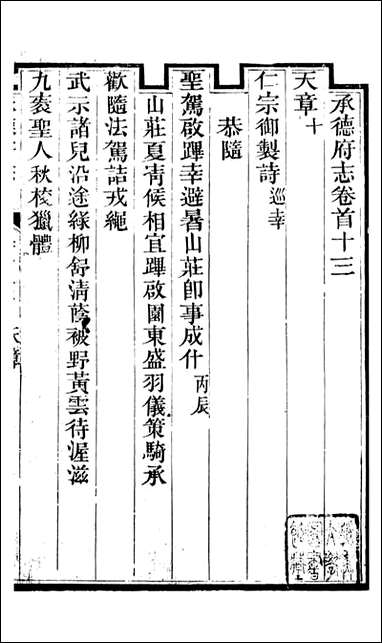 承德府志卷首十三
天章十
仁宗御製詩巡幸
恭隨
聖駕啟蹕幸避暑山莊卽事成什丙辰
山莊夏凊候相宜蹕啟園東盛羽儀策騎承
歡隨法駕詰戎繩
武示諸兒沿途綠柳舒清蔭被野黃雲待渥滋
九袠聖人秋校獵體